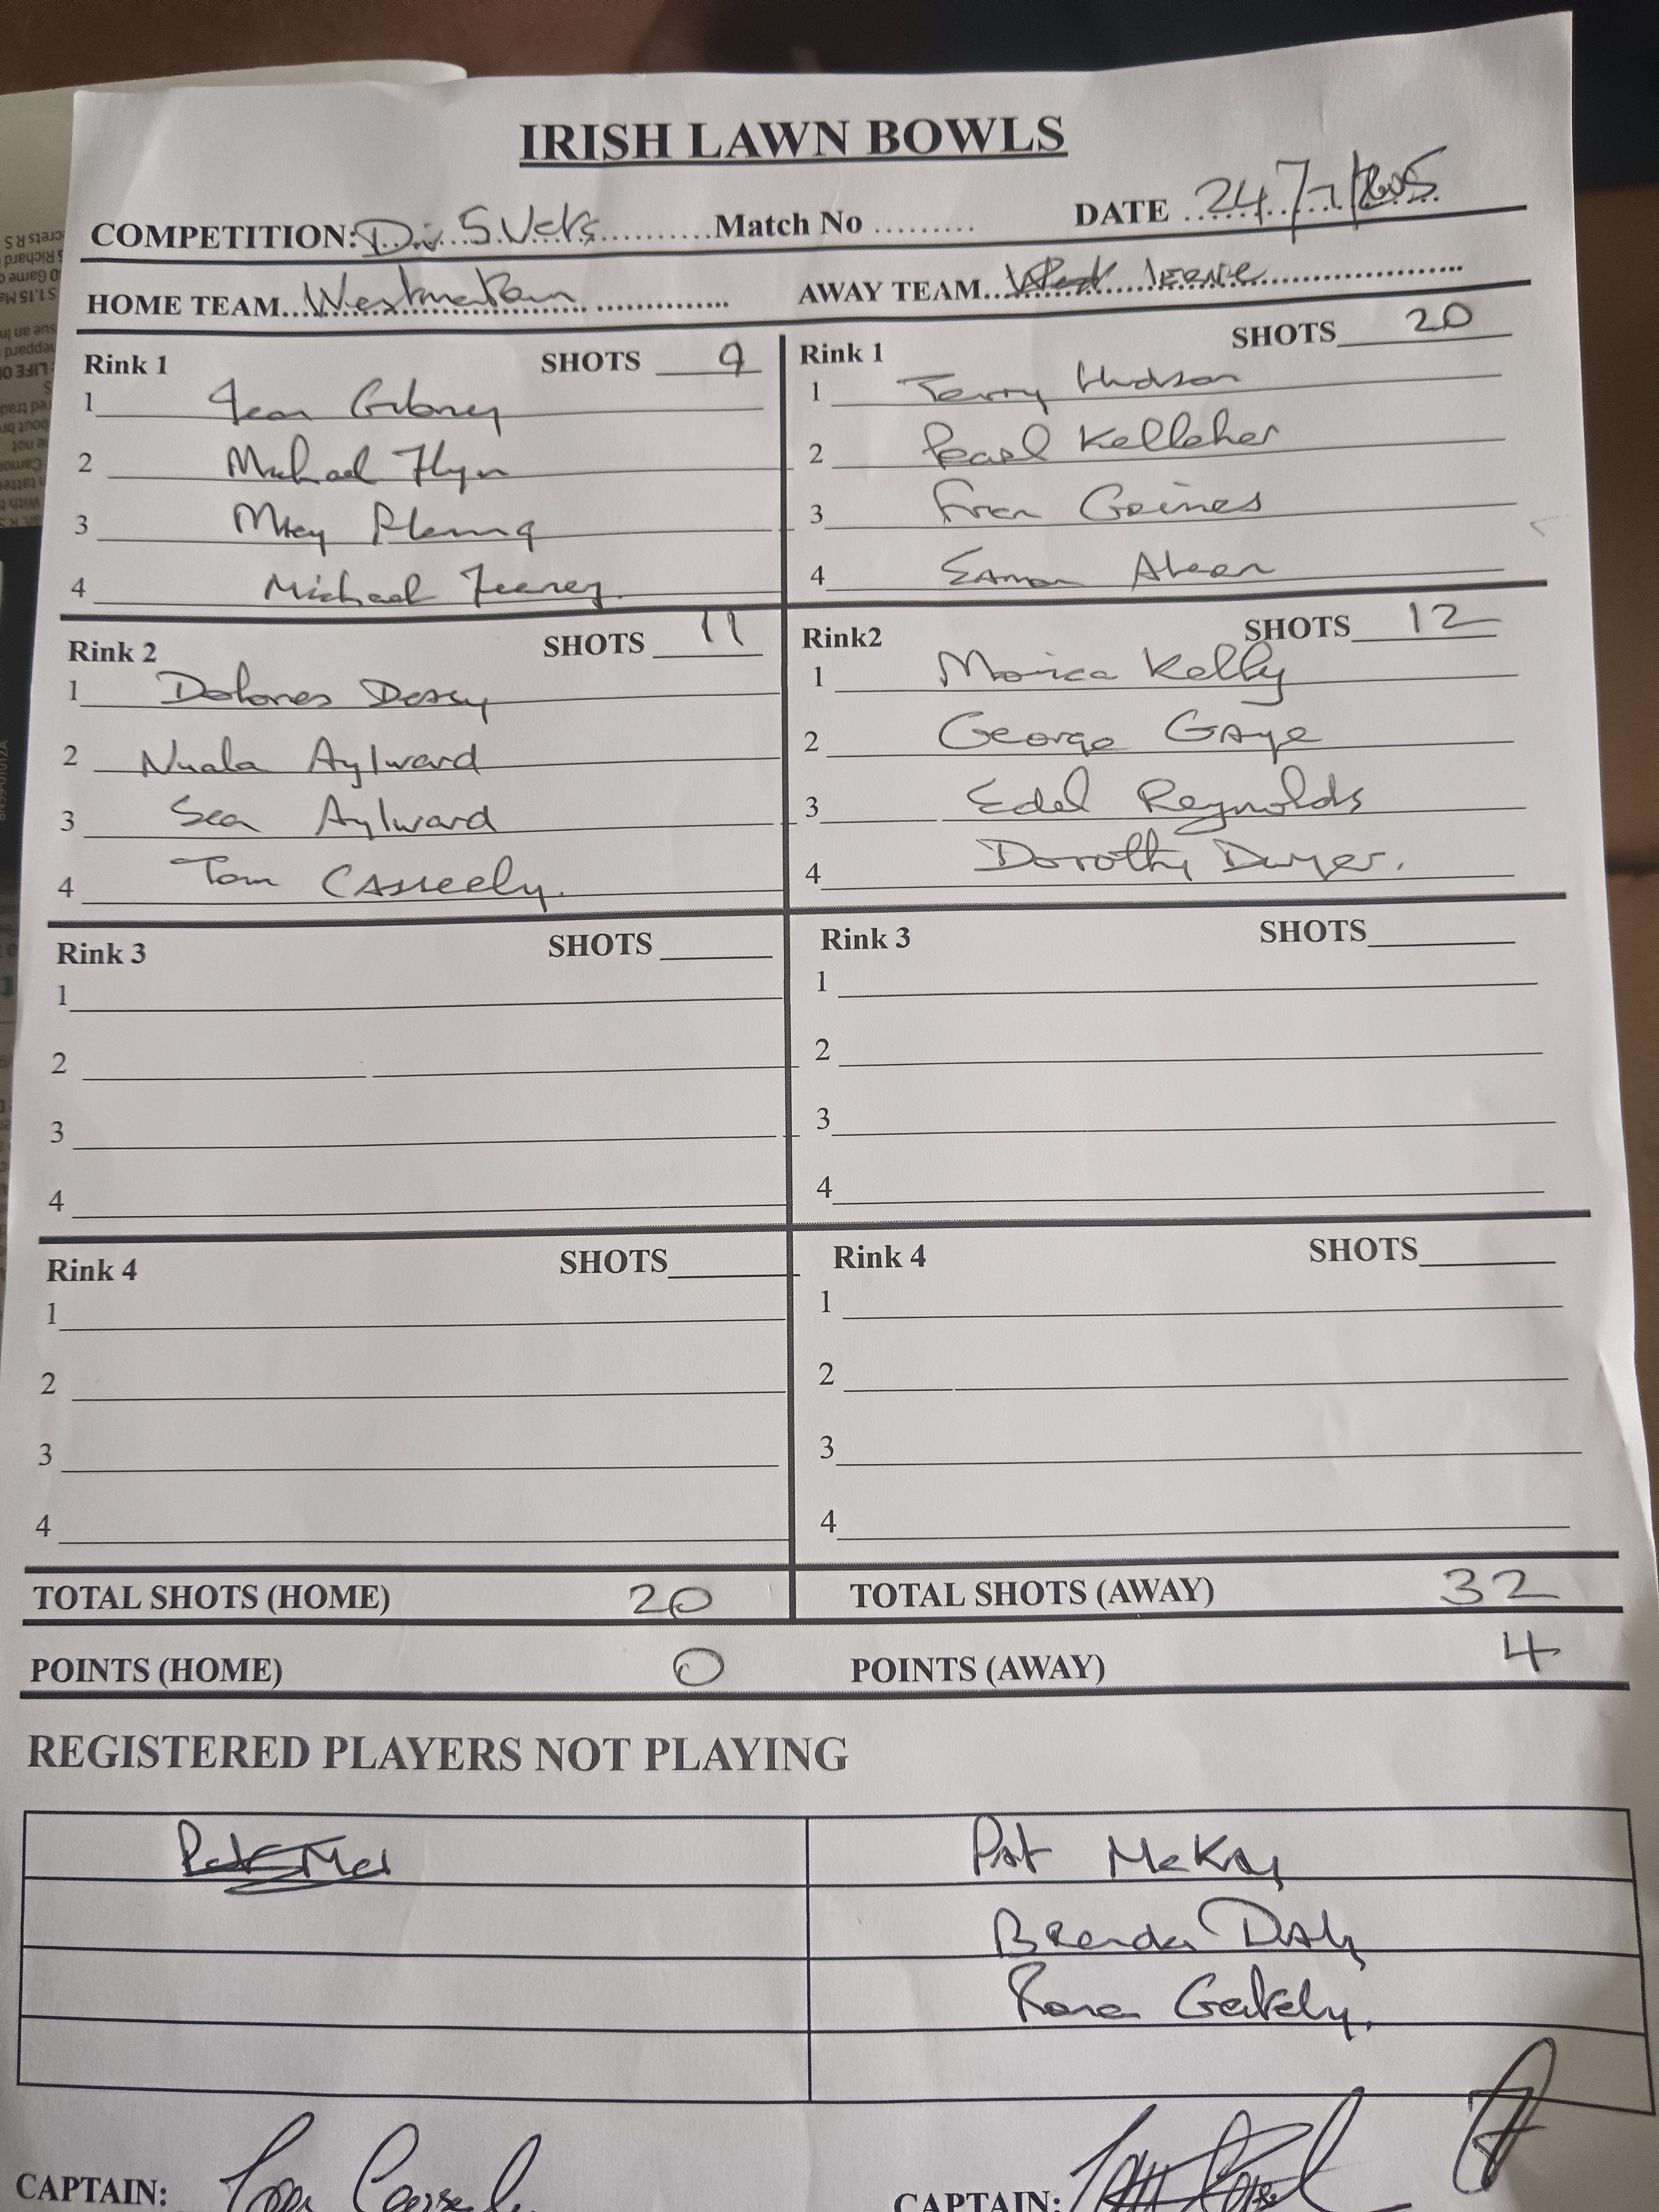 IRISH LAWN BOWLS
COMPETITION: Div 5 Vets Match No DATE 24/7/2025
HOME TEAM Westmanstown AWAY TEAM IERNE
Rink 1 SHOTS 9 Rink 1 SHOTS 20
1 Jean Gibney 1 Terry Hudson
2 Michael Flynn 2 Pearl Kelleher
3 3 Fran Gaines
4 Michael Feeney 4 Eamon Ahearn
Rink 2 SHOTS 11 Rink2 SHOTS 12
1 Dolores 1 Monica Kelly
2 Nuala Aylward 2 George Gaye
3 Sean Aylward 3 Edel Reynolds
4 Tom Casserly. 4 Dorothy Dwyer.
Rink 3 SHOTS Rink 3 SHOTS
1 1
2 2
3 3
4 4
Rink 4 SHOTS Rink 4 SHOTS
1 1
2 2
3 3
4 4
TOTAL SHOTS (HOME) 20 TOTAL SHOTS (AWAY) 32
POINTS (HOME) 0 POINTS (AWAY) 4
REGISTERED PLAYERS NOT PLAYING
Pat McKay
Brenda Daly
Gately.
CAPTAIN: Tom CAPTAIN: